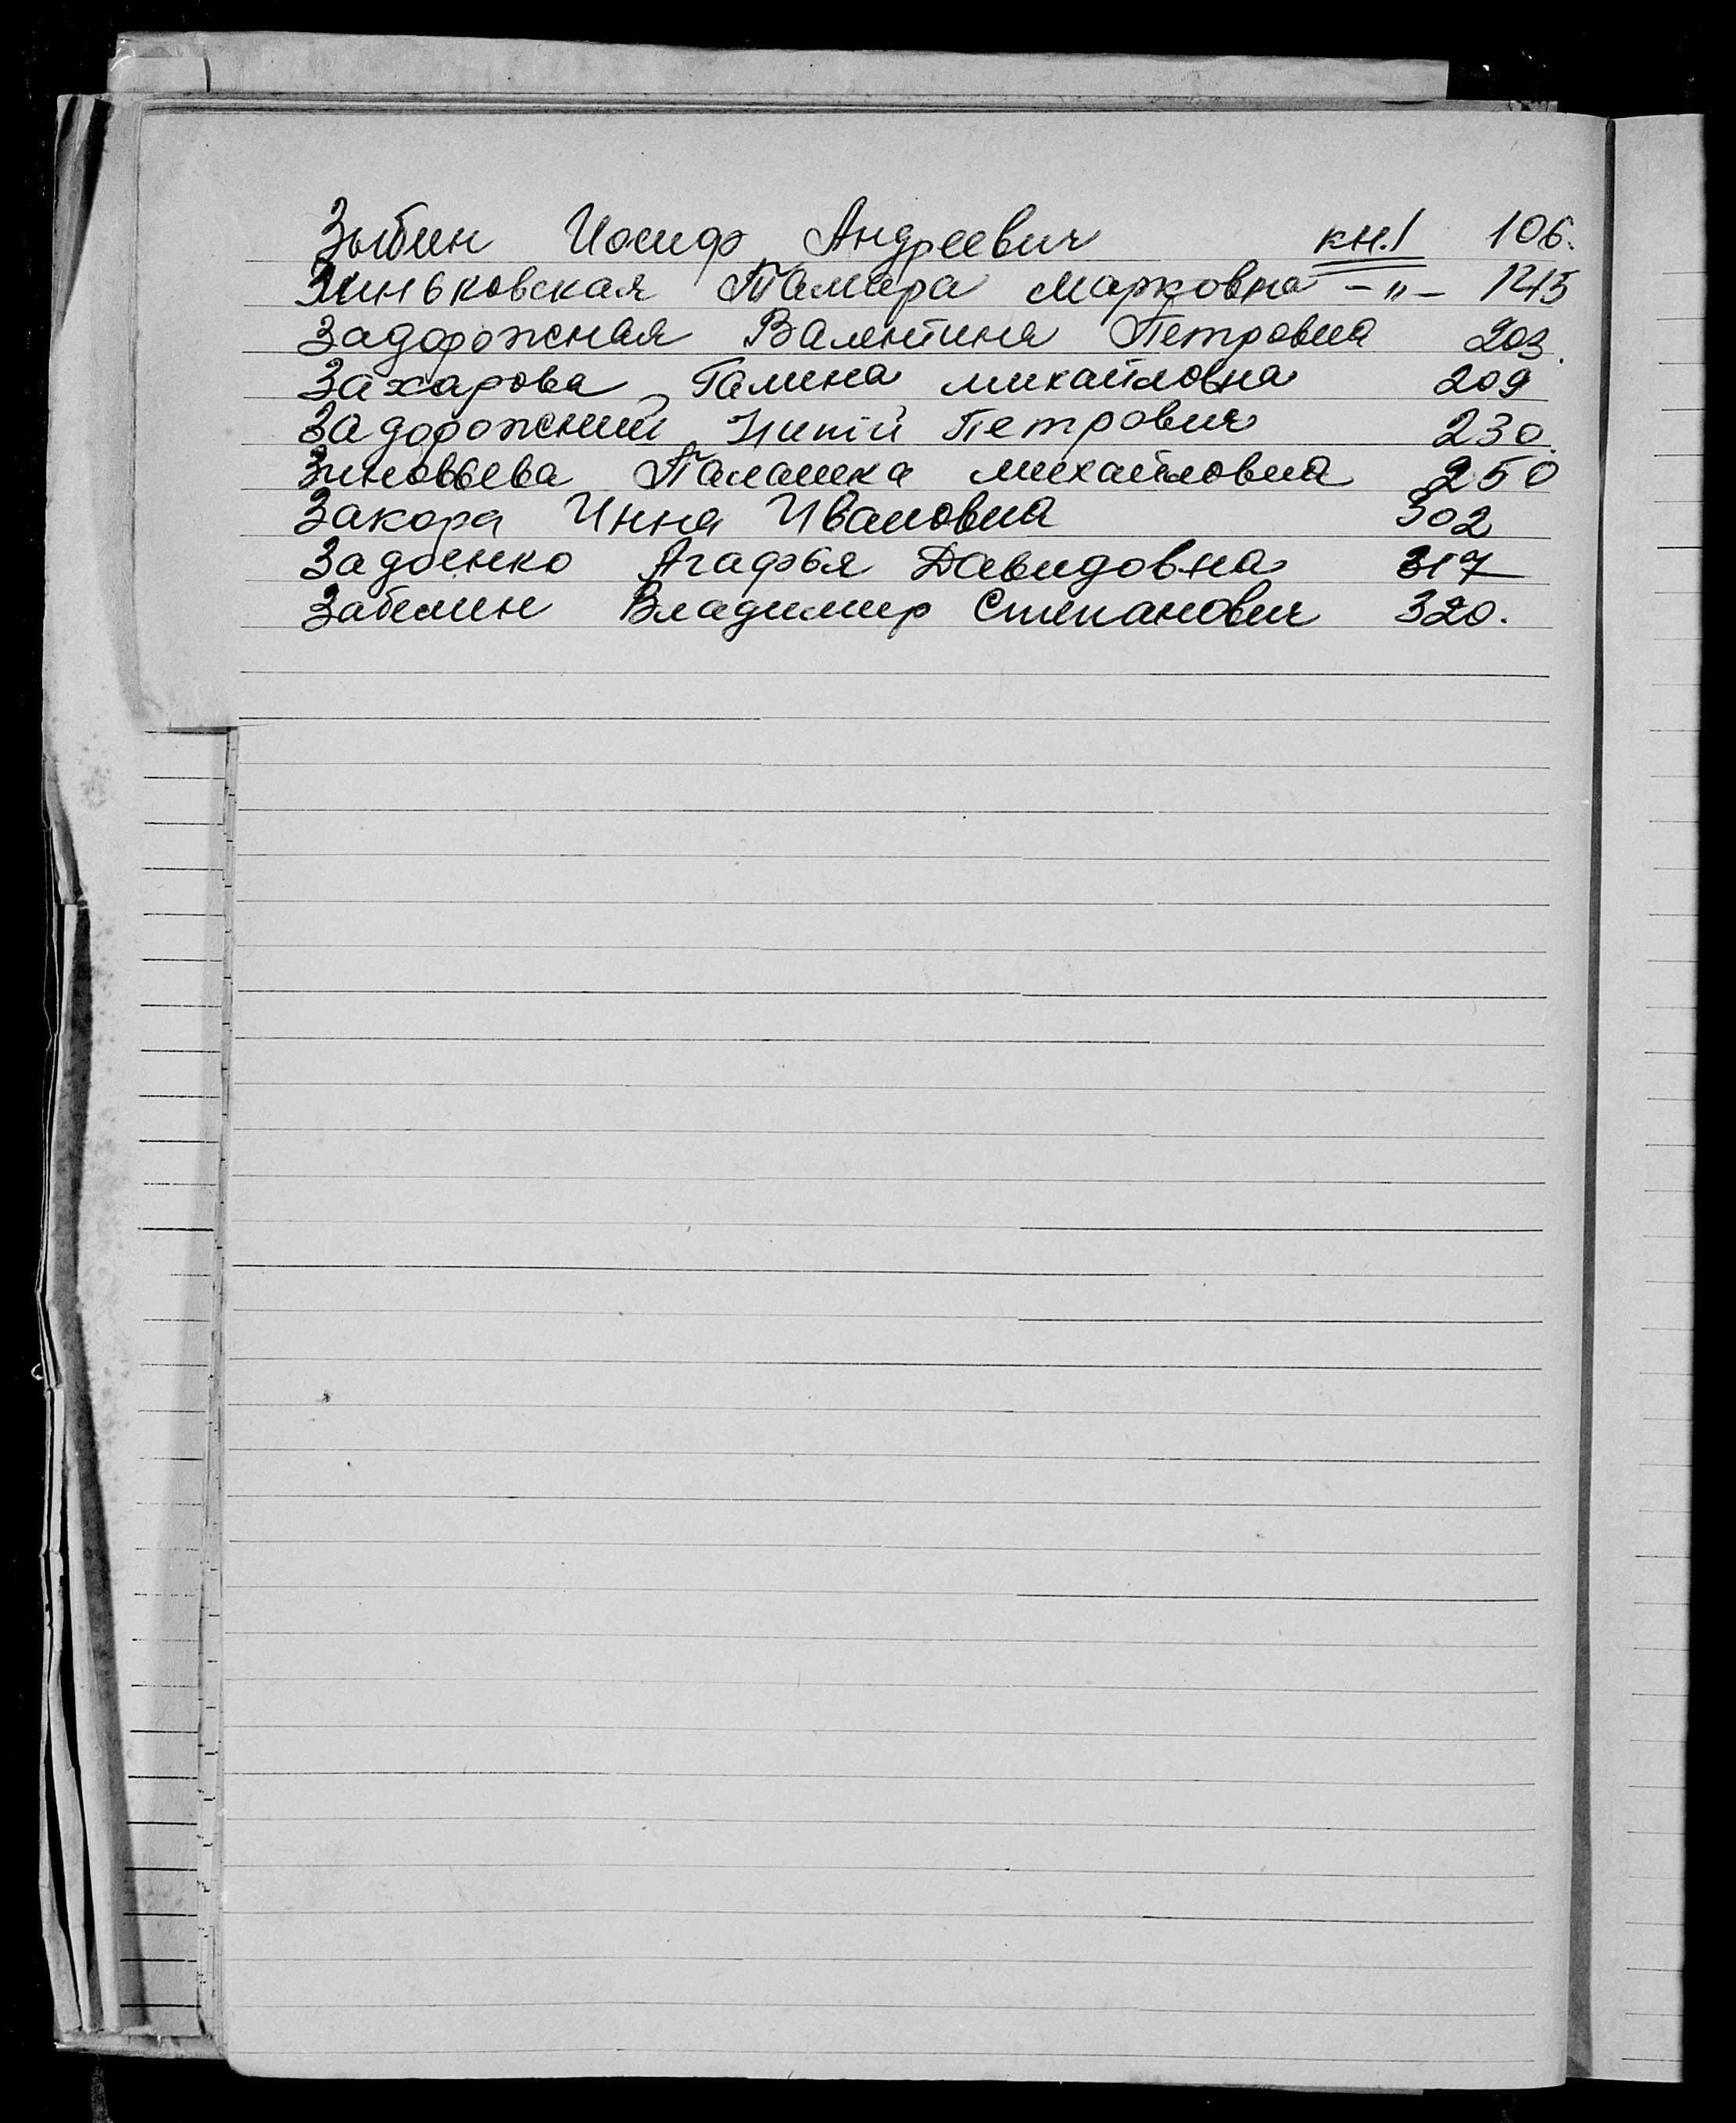 Зыбин Иосиф Андреевич кн.1 106.
Зиньковская Тамара Марковна -"- 145
Задорожная Валентина Петровна 203.
Захарова Галина михайловна 209
Задорожний Петрович 230.
Зиновьева михайловна 250
Закора Инна Ивановна 302
Задоенко Агафья Давидовна 317
Забелин Владимир Степанович 320.